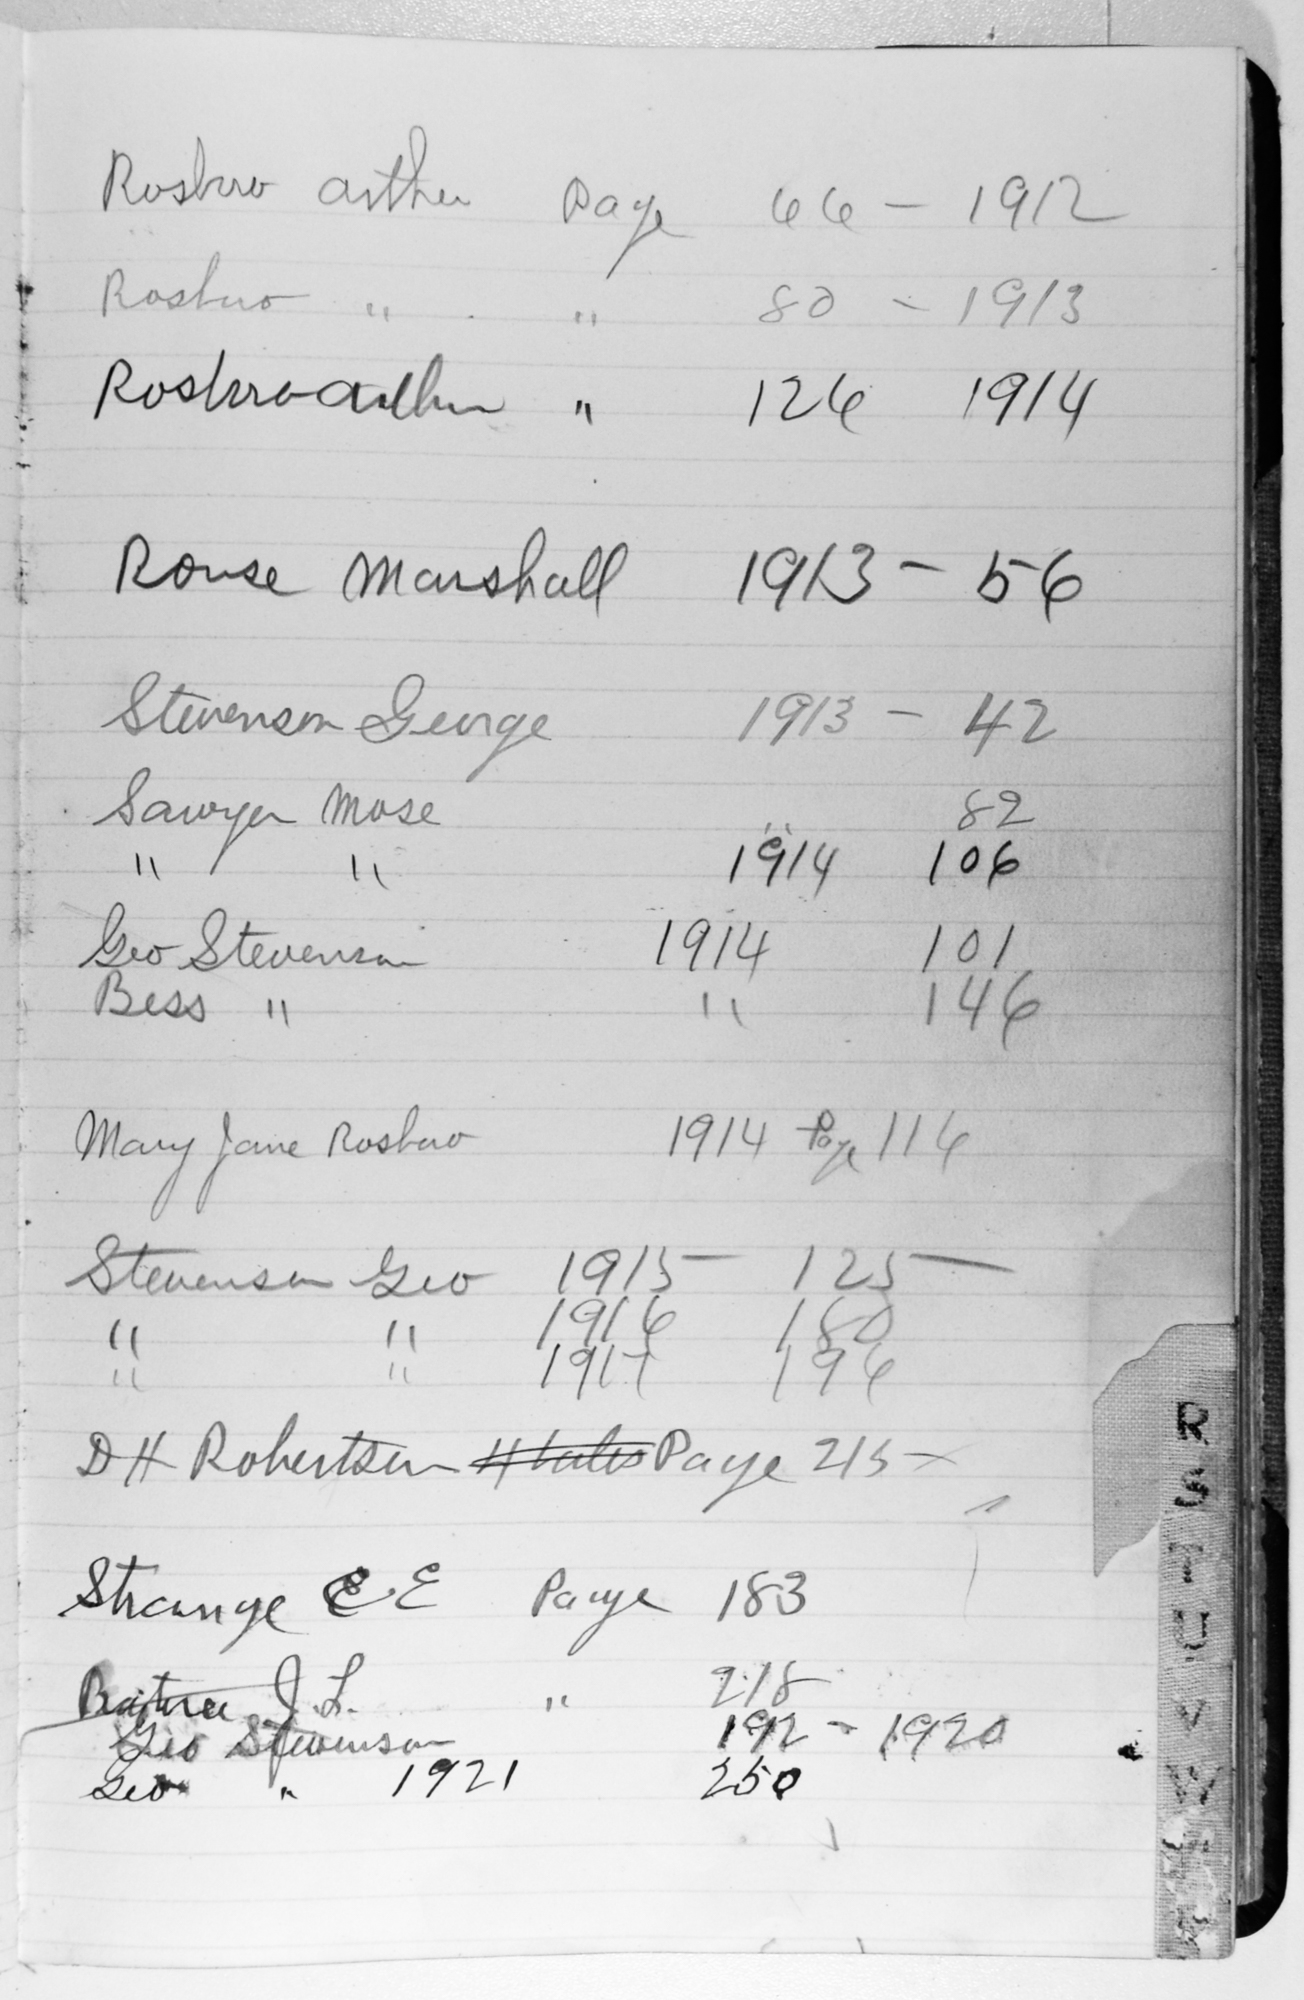 Rosboro Arthur Page 66 - 1912
Rosboro " " 80 - 1913
Rosboro Arthur " 126 1914
Rouse Marshall 1913 - 56
Stevenson George 1913 - 42
Sawyer Mose " 82
" " 1914 106
Geo Stevenson 1914 101
Bess " " 146
Mary Jane Rosboro 1914 Page 116
Stevenson Geo 1915 - 125 -
" " 1916 180
" " 1917 196
D H Robertson Page 215
Strange E E Page 183
J. L. " 218
Geo Stevenson 192 - 1920
Geo " 1921 250
R
S
T
U
V
W